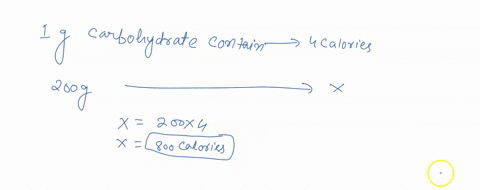 1 g carbohydrate contain → 4 calories
200g → x
x = 200x4
x = 800 calories